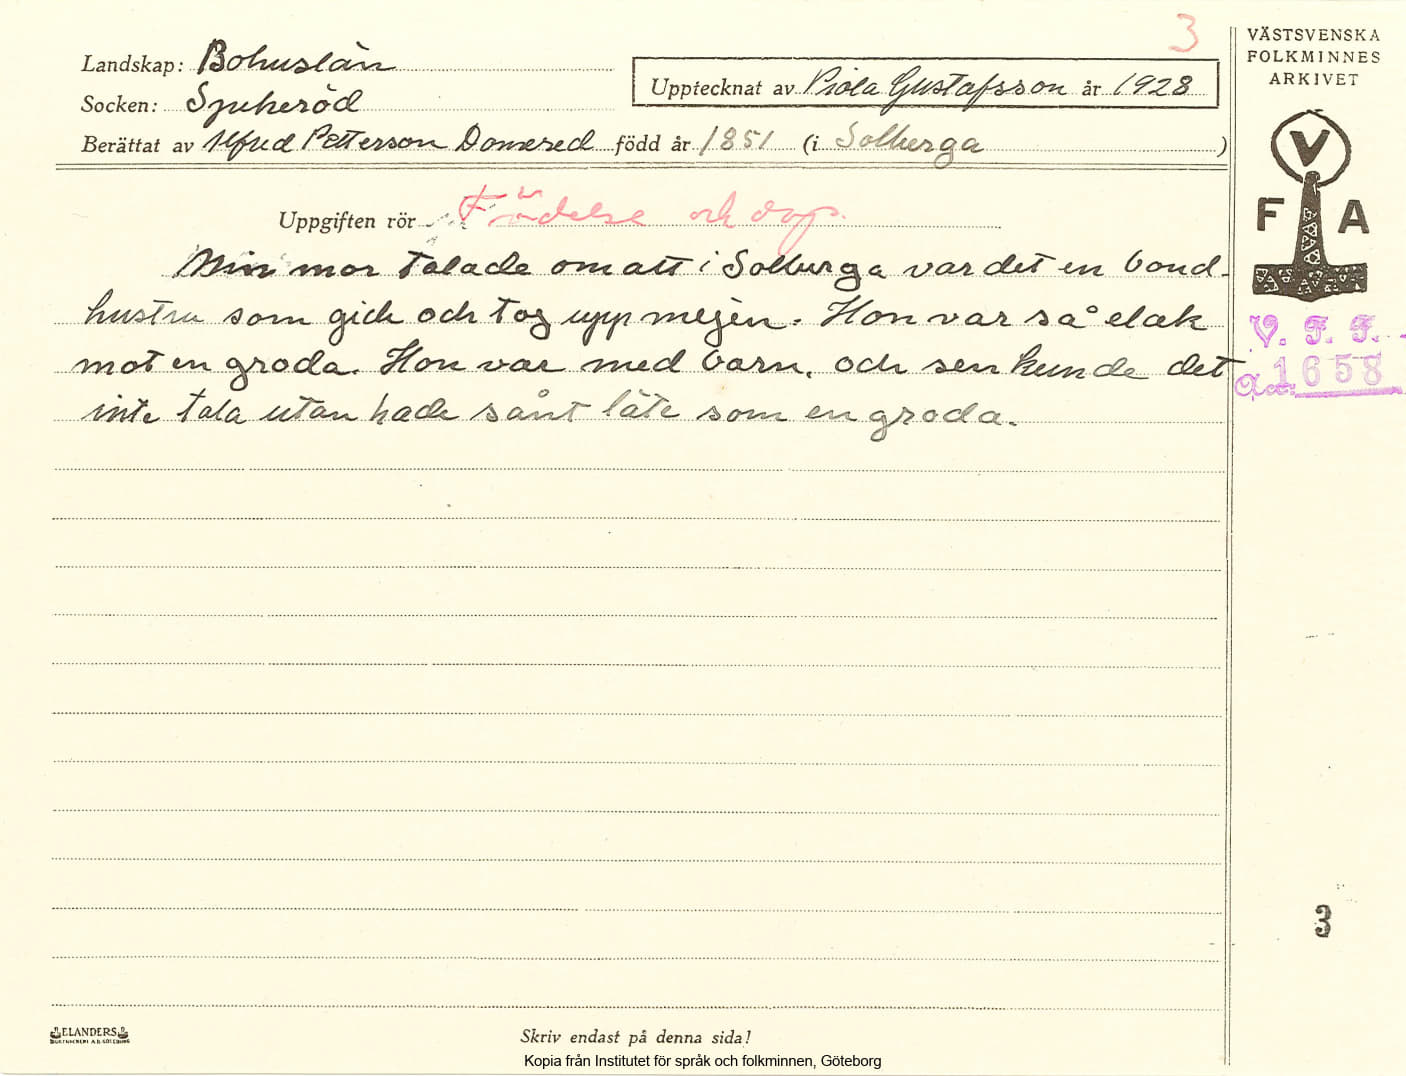 3
Landskap: Bohuslän
Socken: Spekeröd
Upptecknat av Viola Gustafsson år 1928
Berättat av Alfred Petterson Domered född år 1851 (i Solberga )
Uppgiften rör Födelse och dop.
Min mor talade om att i Solberga var det en bond-
hustru som gick och tog upp mejen. Hon var så elak
mot en groda. Hon var med barn, och sen kunde det
inte tala utan hade sånt läte som en groda.
VÄSTSVENSKA
FOLKMINNES
ARKIVET
V
F A
V. F. F.
Acc. 1658
3
ELANDERS
BOKTRYCKERI A.B. GÖTEBORG
Skriv endast på denna sida!
Kopia från Institutet för språk och folkminnen, Göteborg